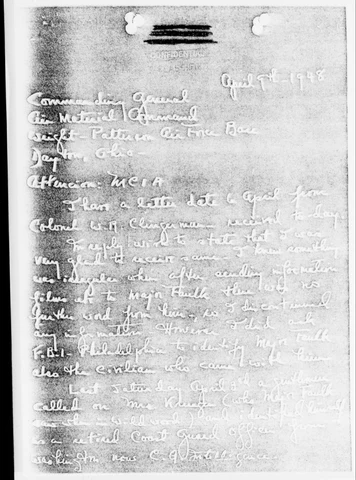 April 9th-1948
Commanding General
Air Material Command
Wright-Patterson Air Force Base
Dayton, Ohio-
Attencion: MCIA
I have a letter date 6 April from
Colonel W.R. Clingerman received to-day.
In reply wish to state that I was
very glad to receive same. I knew something
was irregular when after sending information
films etc to Major Faulk there was no
further word from him, so I
any information. However I did ask
F.B.I. Philadelphia to identify Major Faulk
also the civilian who came with him
Last Saturday April 3rd a gentleman
called on Mrs
as a retired Coast Guard officer
now C.G. Intelligence